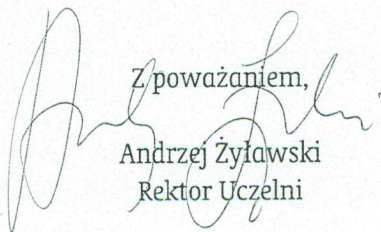 Z poważaniem,
Andrzej Żyławski
Rektor Uczelni